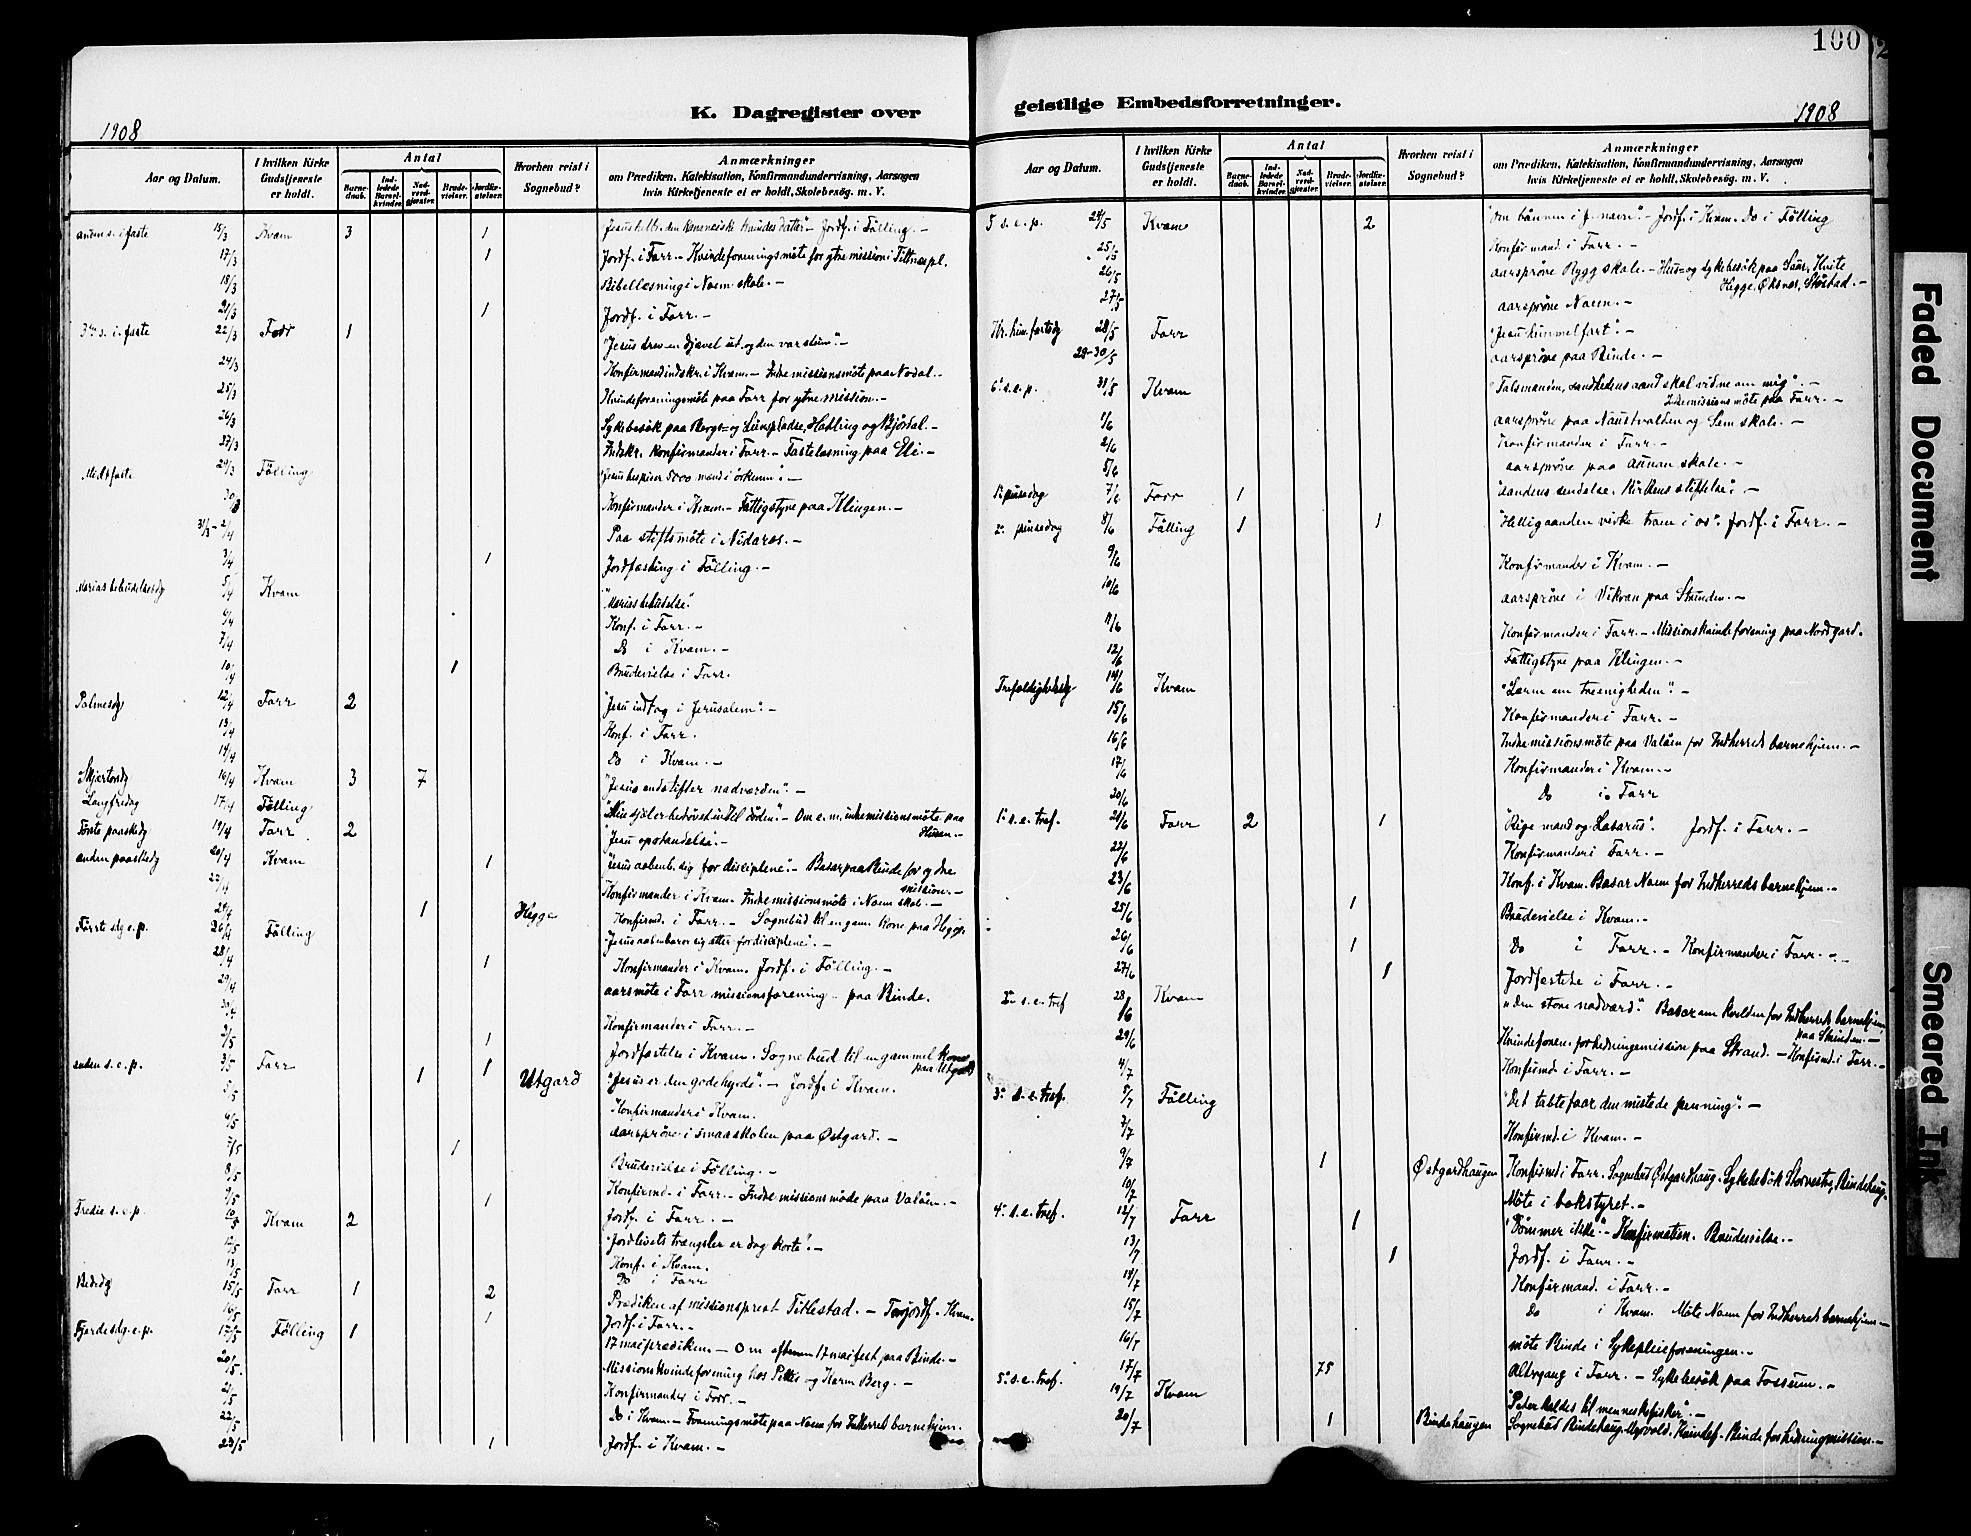 100
K. Dagregister over
geistlige Embedsforretninger.
1908
1908
Aar og Datum.
I hvilken Kirke
Gudstjeneste
er holdt.
Antal
Barne-
daab.
Ind-
ledede
Barsel-
kvinder.
Nad-
verd-
gjæster.
Brude-
vielser.
Jordfæ-
stelser.
Hvorhen reist i
Sognebud?
Anmærkninger
om Prædiken, Katekisation, Konfirmandundervisning, Aarsagen
hvis Kirketjeneste ei er holdt, Skolebesøg. m. V.
anden s. i faste 15/3 Kvam 3 1 Jordf. i Følling. —
17/3 1 Jordf. i Farr. — Kvindeforeningsmöte for ytre mission i
18/3 Bibellæsning i Naem skole. —
21/3 1 Jordf. i Farr. —
3die s. i faste 22/3 Farr 1 "Jesus drev en djævel ut, og den var stum". —
24/3 Konfirmandindskr. i Kvam. — Indre missionsmöte paa Nodal. —
25/3 Kvindeforeningsmöte paa Farr for ytre mission. —
26/3 Sykebesøk paa og Hatling og Bjørdal. —
27/3 Indskr. konfirmander i Farr. — Fastelæsning paa Eli. —
Midtfaste 29/3 Følling "Jesus bespiser 5000 mand i örkenen". —
30/3 Konfirmander i Kvam. — Fattigstyre paa Klingen. —
31/3 – 2/4 Paa stiftsmöte i Nidaros. —
3/4 1 Jordfæsting i Følling. —
Marias bebudelsesdg 5/4 Kvam "Marias bebudelse".
6/4 Konf. i Farr. —
7/4 Do i Kvam. —
10/4 1 Brudevielse i Farr.
Palmesdg 12/4 Farr 2 "Jesu indtog i Jerusalem". —
13/4 Konf. i Farr.
14/4 Do i Kvam. —
Skjærtorsdg 16/4 Kvam 3 7 "Jesus indstifter nadverden". —
Langfredag 17/4 Følling "Min sjæl er bedrövet indtil döden". — Om e. m. indremissionsmöte paa
Husan. —
Første paaskedg 19/4 Farr 2 "Jesu opstandelse". —
anden paaskedg 20/4 Kvam 1 "Jesus aabenb. sig for disciplene". — Basar paa Binde for ydre
mission. —
22/4 Konfirmander i Kvam. Indremissionsmöte i Naem skole. —
24/4 1 Hegge Konfirmd. i Farr. — Sognebud til en gam. kone paa Hegge.
Første sdg e. p. 26/4 Følling "Jesus aabenbarer sig atter for disciplene". —
28/4 1 Konfirmander i Kvam. Jordf. i Følling. —
29/4 aarsmöte i Farr missionsforening paa Binde.
30/4 Konfirmander i Farr. —
2/5 1 Jordfæstelse i Kvam. Sognebud til en gammel kone
paa Utgard
anden s. e. p. 3/5 Farr 1 1 Utgard "Jesus er den gode hyrde". — Jordf. i Kvam.
5/5 Konfirmander i Kvam.
6/5 aarspröve i smaaskolen paa Østgard. —
7/5 1 Brudevielse i Følling. —
8/5 Konfirmd. i Farr. — Indre missionsmöde paa Valåen. —
9/5 1 Jordf. i Farr. —
Tredie s. e. p. 10/5 Kvam 2 "Jordlivets trængsler er dog korte". —
12/5 Konf. i Kvam.
13/5 Do i Farr
Bededg 15/5 Farr 1 2 Prædiken af missionsprest Titlestad. — Jordf. Kvam.
16/5 1 Jord. i Farr. —
Fjerde sdg. e. p. 17/5 Følling 1 17 maiprædiken. — Om aftenen 17 maifest paa Binde. —
20/5 Missionskvindeforening hos Petter og Karen Berg. —
21/5 Konfirmander i Farr. —
22/5 Do i Kvam. — Foreningsmöte paa Naem for Indherreds barnehjem.
23/5 1 Jordf. i Kvam. —
Aar og Datum.
I hvilken Kirke
Gudstjeneste
er holdt.
Antal
Barne-
daab.
Ind-
ledede
Barsel-
kvinder.
Nad-
verd-
gjæster.
Brude-
vielser.
Jordfæ-
stelser.
Hvorhen reist i
Sognebud?
Anmærkninger
om Prædiken, Katekisation, Konfirmandundervisning, Aarsagen
hvis Kirketjeneste ei er holdt, Skolebesøg. m. V.
5 s. e. p. 24/5 Kvam 2 "Om bönnen i J. navn". — Jordf. i Kvam. Do i Følling
25/5 Konfirmand. i Farr. —
26/5 aarspröve Rygg skole. — Hus= og sykebesök paa Saur, Hvite
Hegge, Øksnes, Støstad. —
27/5 aarspröve Naem. —
Kr. him. fartsdg 28/5 Farr "Jesu himmelfart". —
29–30/5 aarspröve paa Binde. —
6. s. e. p. 31/5 Kvam "Talsmanden, sandhedens aand skal vidne om mig". —
Indremissionsmöte paa Farr. —
1/6 aarspröve paa Naustvolden og Sem skole. —
2/6 Konfirmander i Farr. —
5/6 aarspröve paa Annan skole. —
1. pinsedag 7/6 Farr 1 "Aandens sendelse. Kirkens stiftelse". —
2. pinsedag 8/6 Følling 1 1 "Helligaanden virke troen i os". Jordf. i Farr. —
9/6 Konfirmander i Kvam. —
10/6 aarspröve i Vikvan paa Strinden. —
11/6 Konfirmander i Farr. — Missionskvindeforening paa Nordgard.
12/6 Fattigstyre paa Klingen. —
Trefoldighedsdg 14/6 Kvam 1 "Læren om treenigheden". —
15/6 Konfirmander i Farr. —
16/6 Indre missionsmöte paa Valåen for Indherreds barnehjem. —
17/6 Konfirmander i Kvam. —
20/6 Do i Farr
1. s. e. tref. 21/6 Farr 2 1 "Rige mand og Lasarus". Jordf. i Farr. —
22/6 Konfirmander i Farr. —
23/6 Konf. i Kvam. Basar Naem for Indherreds barnehjem. —
25/6 1 Brudevielse i Kvam. —
26/6 1 Do i Farr. — Konfirmander i Farr. —
27/6 1 Jordfæstelse i Farr. —
2. s. e. tref 28/6 Kvam "Den store nadverd". Basar om kvelden for Indherreds barnehjem
paa Strinden. —
29/6 Kvindeforen. for hedningemission paa Strand. — Konfirmd. i Farr. —
4/7 Konfirmd. i Farr. —
3. s. e. tref. 5/7 Følling "Det tabte faar den mistede penning". —
7/7 Konfirmd. i Kvam. —
9/7 1 Østgardhaugen Konfirmd. i Farr. Sognebud Østgardhaug. Sykebesök Stornestre, Bindehaug.
10/7 Möte i bokstyret. —
4. s. e. tref. 12/7 Farr 1 "Dömmer ikke". — Konfirmation. Brudevielse. —
13/7 1 Jordf. i Farr. —
14/7 Konfirmand. i Farr. —
15/7 Do i Kvam. Möte Naem for Indherreds barnehjem. —
16/7 möte Binde i Sykepleieforeningen. —
17/7 75 Altergang i Farr. — Sykebesök paa Fossum. —
5. s. e. tref. 19/7 Kvam "Peter kaldes til menneskefisker". —
20/7 1 Bindehaugen Sognebud Bindehaug. Myrvold. Kvindef. Binde for hedningmission. —
Faded Document
Smeared Ink